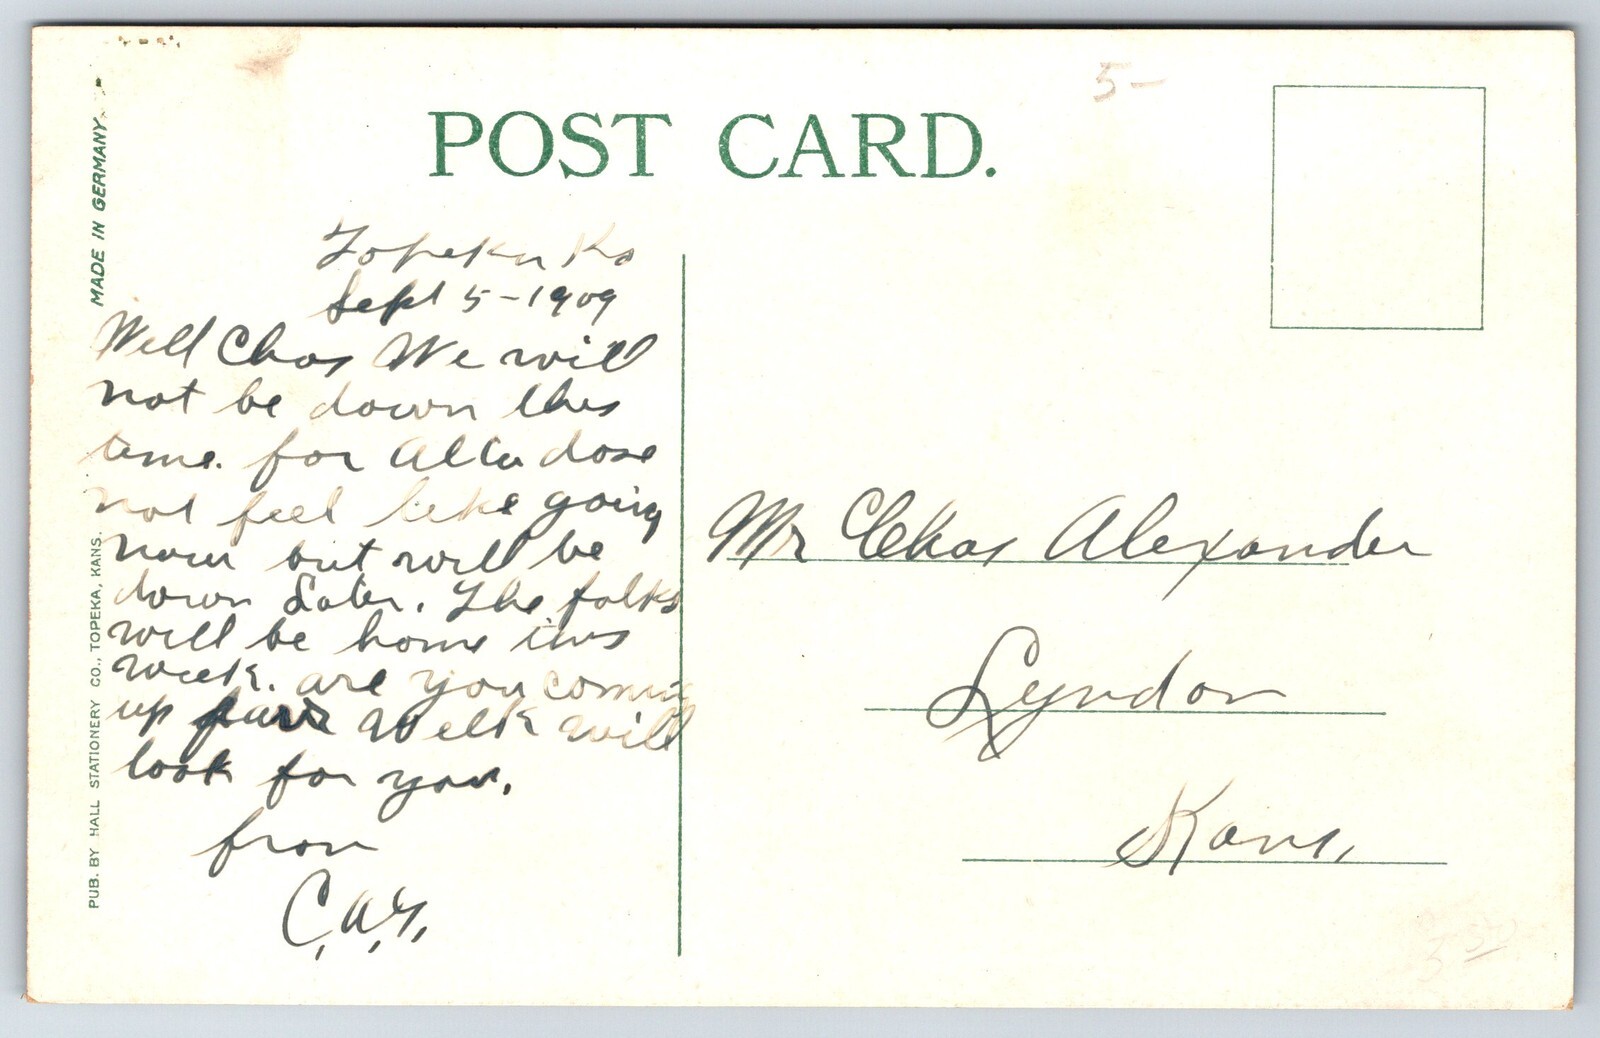 POST CARD.
5-
MADE IN GERMANY.
PUB. BY HALL STATIONERY CO., TOPEKA, KANS.
Topeka Ks
Sept 5-1909
Well Chas We will
not be down this
time. for Alta dose
not feel like going
now but will be
down Later. The folks
will be home this
week. are you coming
up fair Week will
look for you.
from
C.A.Y.
Mr Chas Alexander
Lyndon
Kans.